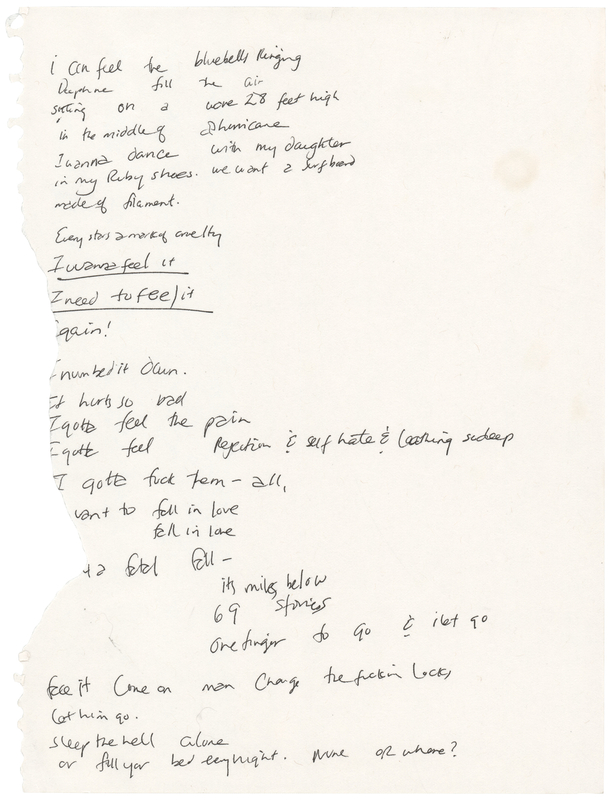 i can feel the bluebells Ringing
Daphne fill the air
sitting on a wave 28 feet high
in the middle of a hurricane
I wanna dance with my daughter
in my Ruby shoes. we want a surfboard
made of filament.
Every stars a mark of cruelty
I wanna feel it
I need to feel it
again!
I numbed it down.
It hurts so bad
I gotta feel the pain
I gotta feel Rejection & self hate & looking so deep
I gotta fuck them - all,
want to fall in love
fall in love
a fatal fall -
its miles below
69 stories
one finger to go & i let go
face it Come on man Change the fuckin Locks
Let him go.
sleep the hell alone
or fill your bed evry night. Nune or where?